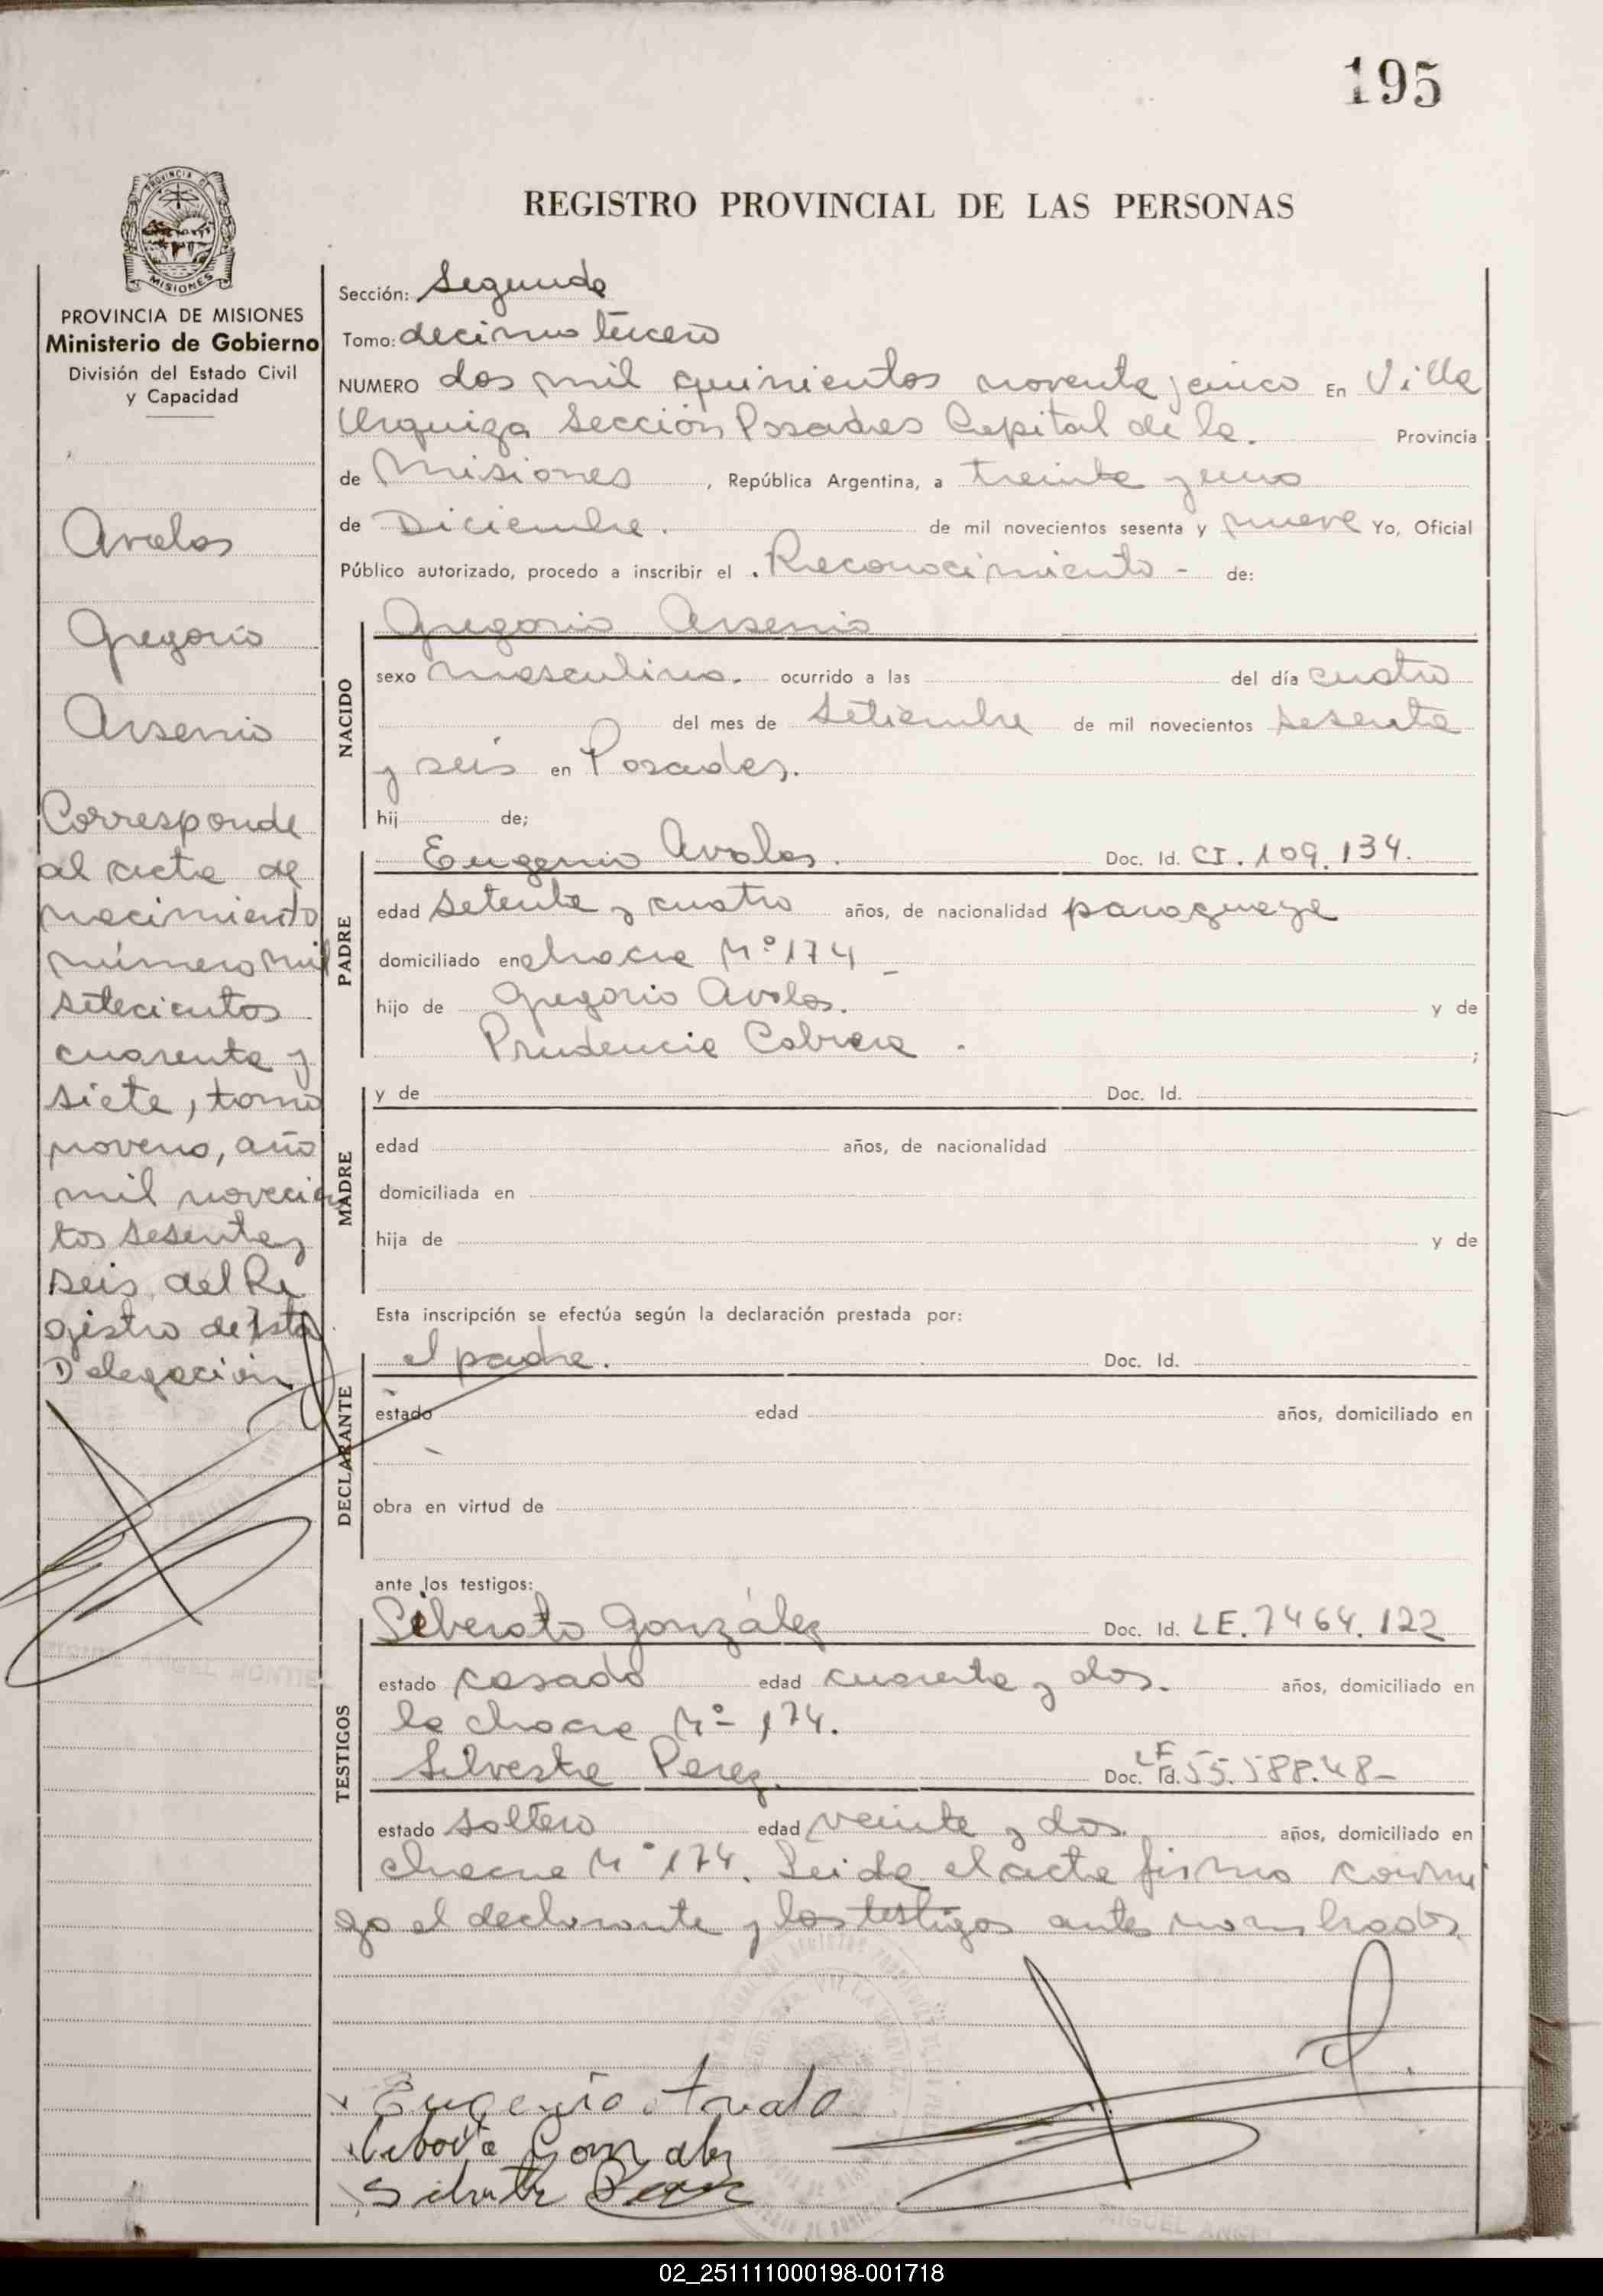 195
REGISTRO PROVINCIAL DE LAS PERSONAS
PROVINCIA DE
MISIONES
PROVINCIA DE MISIONES
Ministerio de Gobierno
División del Estado Civil
y Capacidad
Avalos
Gregorio
Arsenio
Corresponde
al acta de
nacimiento
número mil
setecientos
cuarenta y
siete, tomo
noveno, año
mil novecien
tos sesenta y
seis del Re
gistro de esta
Delegación
Sección: Segunda
Tomo: decimo tercero
NUMERO dos mil quinientos noventa y cinco En Villa
Urquiza Sección Posadas Capital de la. Provincia
de Misiones, República Argentina, a treinta y uno
de Diciembre. de mil novecientos sesenta y nueve Yo, Oficial
Público autorizado, procedo a inscribir el . Reconocimiento - de:
NACIDO
Gregorio Arsenio
sexo masculino. ocurrido a las del día cuatro
del mes de Setiembre de mil novecientos sesenta
y seis en Posadas.
hij de;
PADRE
Eugenio Avalos. Doc. Id. CI. 109.134.
edad setenta y cuatro años, de nacionalidad paraguaya
domiciliado en chacra Nº 174 -
hijo de Gregorio Avalos. y de
Prudencia Cabrera . ;
MADRE
y de Doc. Id.
edad años, de nacionalidad
domiciliada en
hija de y de
Esta inscripción se efectúa según la declaración prestada por:
DECLARANTE
el padre. Doc. Id.
estado edad años, domiciliado en
obra en virtud de
ante los testigos:
TESTIGOS
Liberato González Doc. Id. LE. 7464.122
estado casado edad cuarenta y dos. años, domiciliado en
la chacra Nº 174.
Silvestre Perez. Doc. Id. LE 55.588.48-
estado soltero edad veinte y dos años, domiciliado en
chacra Nº 174. Leida el acta firma conmi
go el declarante y los testigos antes nombrados
Eugenio Avalo
Gonzalez
MIGUEL ANGEL MONTIEL
MIGUEL ANGEL
02_251111000198-001718